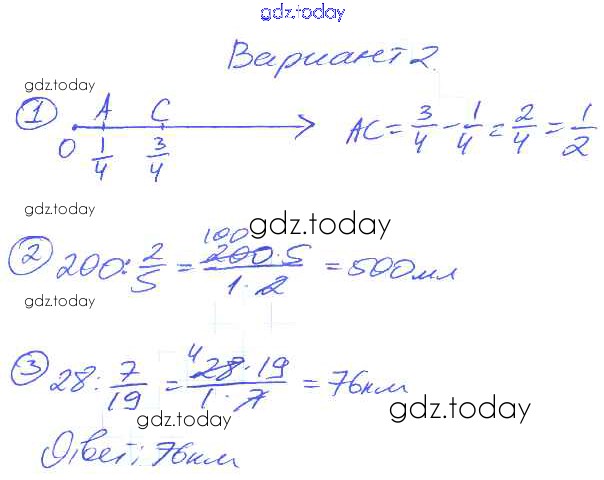 gdz.today
Вариант 2.
gdz.today
1 A C
O 1/4 3/4 AC = 3/4 - 1/4 = 2/4 = 1/2
gdz.today
gdz.today
2 200 : 2/5 = 100 200·5 / 1·2 = 500 мл
gdz.today
3 28 : 7/19 = 4 28·19 / 1·7 = 76 км
gdz.today gdz.today
Ответ: 76 км